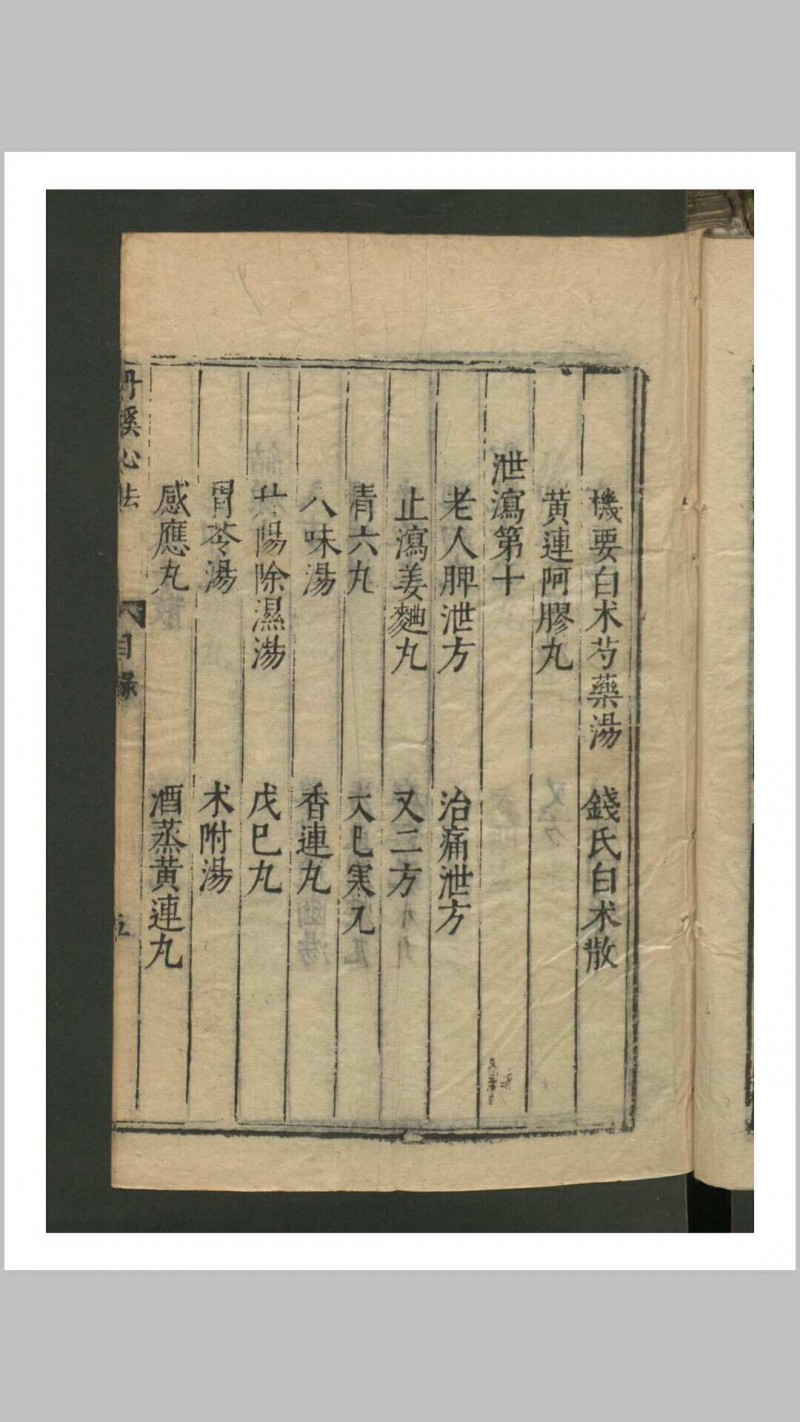 機要白朮芍藥湯　錢氏白朮散
黃連阿膠丸
泄瀉第十
老人脾泄方　治痛泄方
止瀉姜麯丸　又二方
清六丸　大已寒丸
八味湯　香連丸
升陽除濕湯　戊巳丸
胃苓湯　朮附湯
感應丸　酒蒸黃連丸
丹溪心法　目錄　五